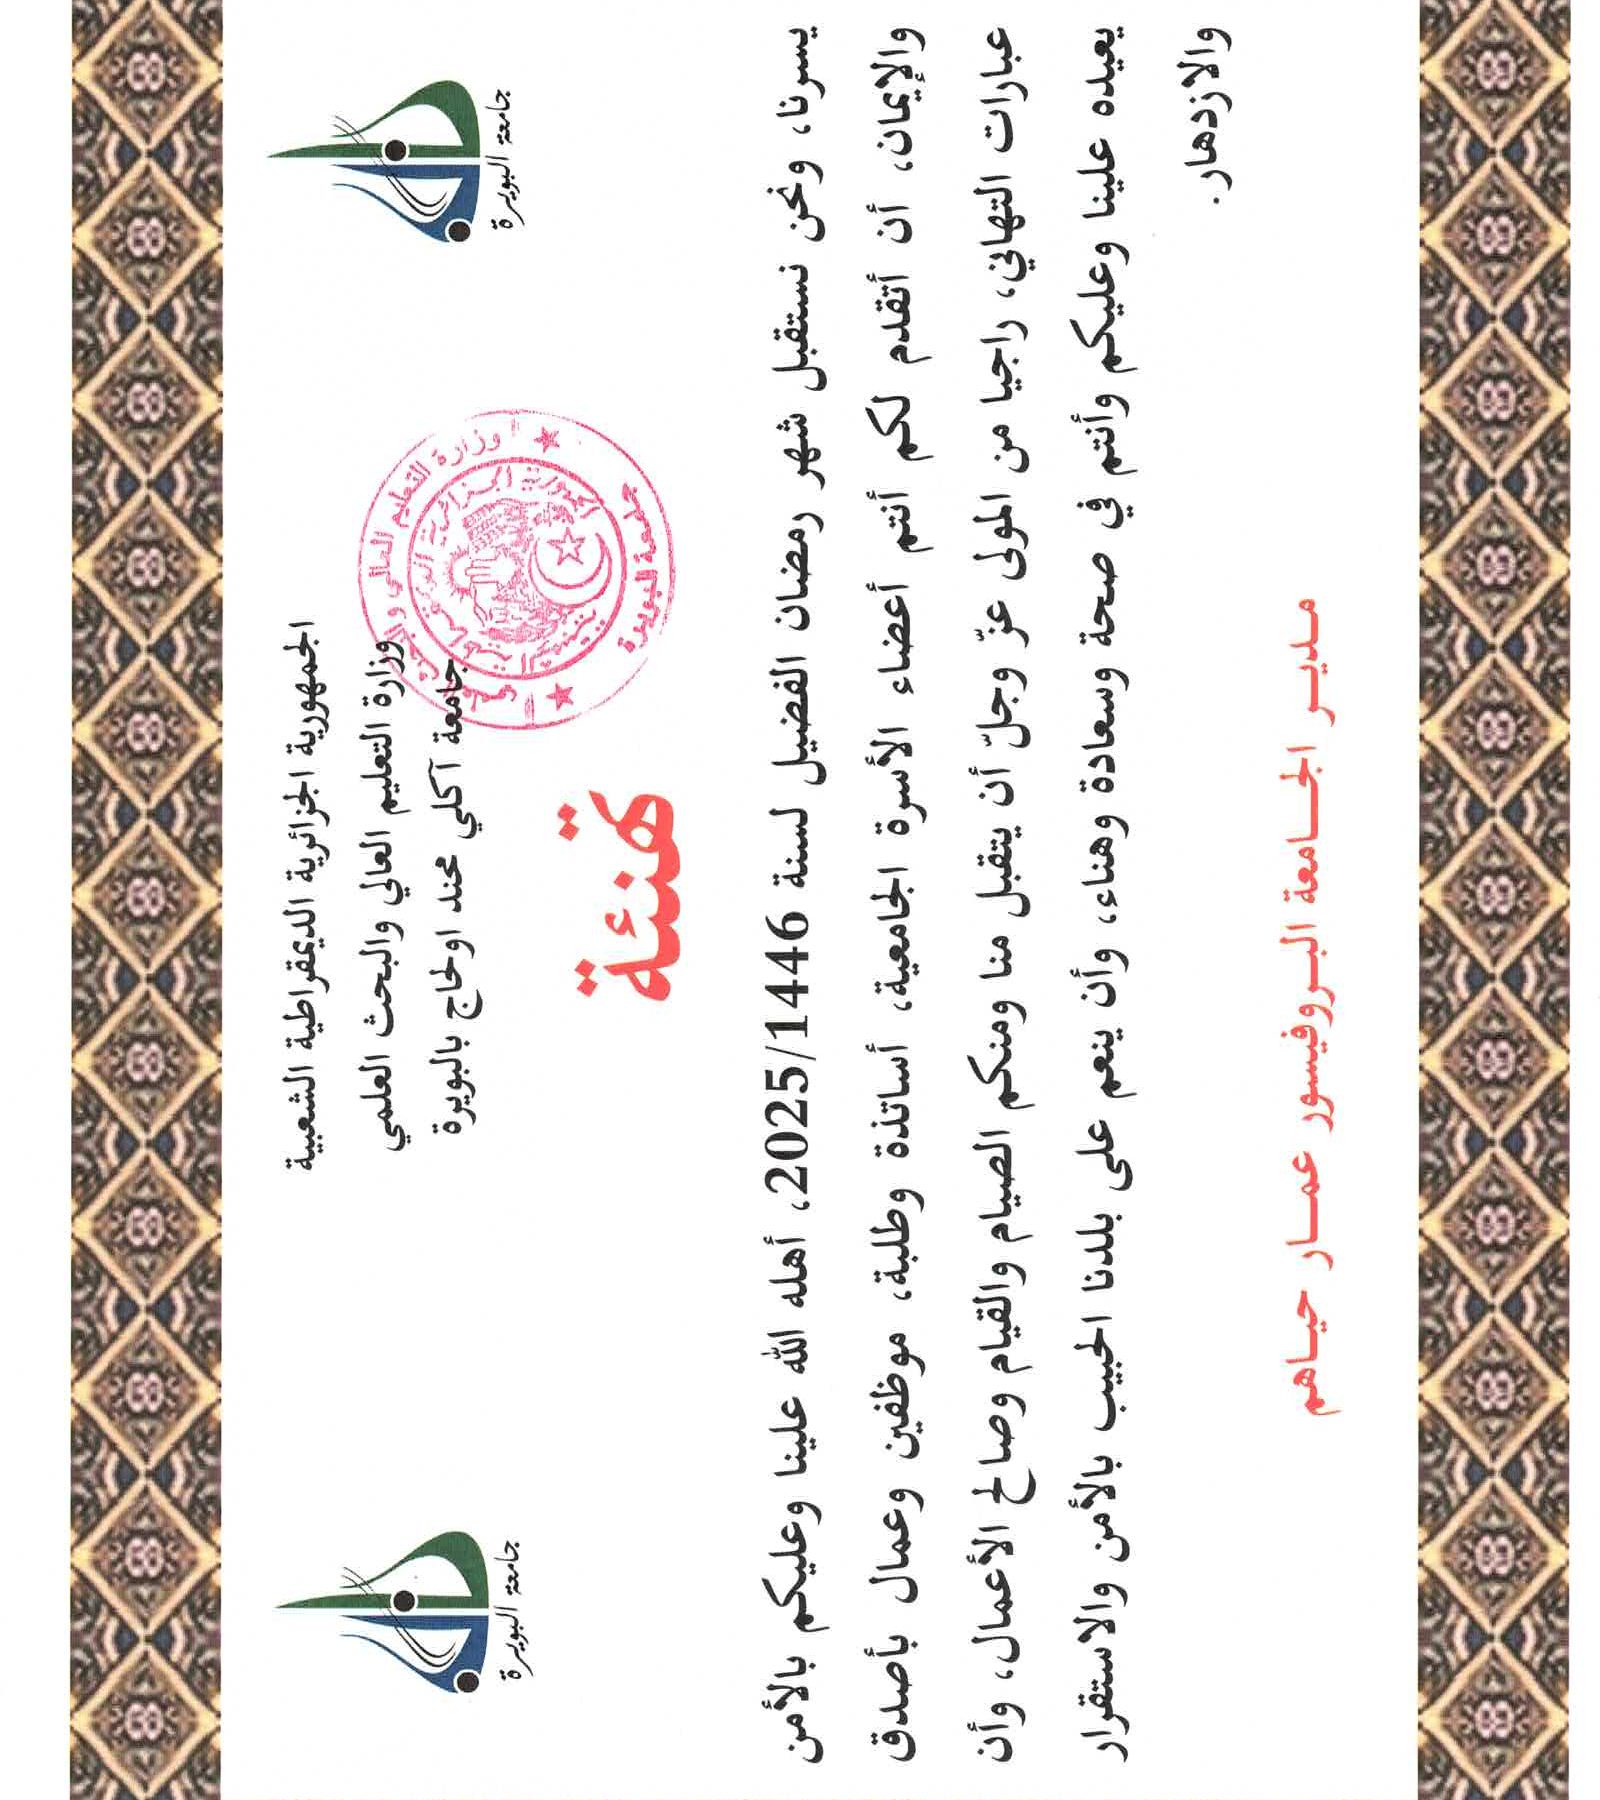 الجمهورية الجزائرية الديمقراطية الشعبية
وزارة التعليم العالي والبحث العلمي
جامعة آكلي محند اولحاج بالبويرة
جامعة البويرة
جامعة البويرة
وزارة التعليم العالي و البحث العلمي
الجمهورية الجزائرية الديمقراطية الشعبية
جامعة البويرة
تهنئة
يسرنا، ونحن نستقبل شهر رمضان الفضيل لسنة 2025/1446، أهله الله علينا وعليكم بالأمن
والإيمان، أن أتقدم لكم أنتم أعضاء الأسرة الجامعية، أساتذة وطلبة، موظفين وعمال بأصدق
عبارات التهاني، راجيا من المولى عزّ وجلّ أن يتقبل منا ومنكم الصيام والقيام وصالح الأعمال، وأن
يعيده علينا وعليكم وأنتم في صحة وسعادة وهناء، وأن ينعم على بلدنا الحبيب بالأمن والاستقرار
والازدهار.
مديـر الجـامعة البـروفيسور عمـار حيـاهم